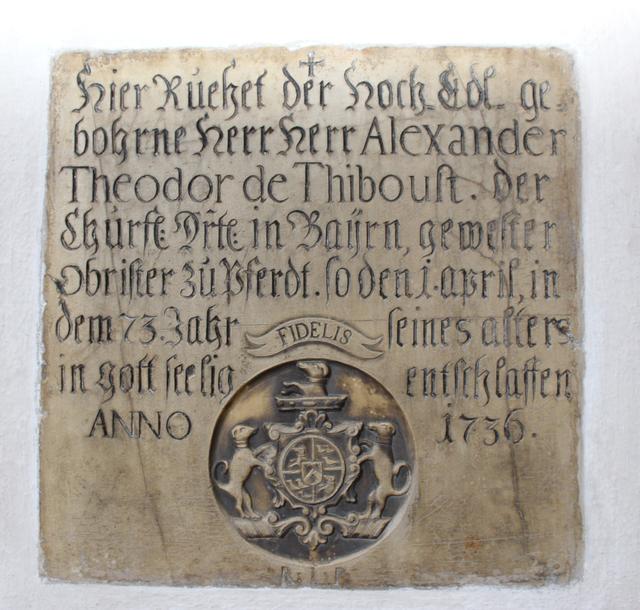 Hier Ruehet der Hoch Edl ge-
bohrne Herr Herr Alexander
Theodor de Thiboust. der
Churfr: Drtr: in Baÿrn, gewester
Obrister zu Pferdt. so den 1. april, in
dem 73. Jahr FIDELIS seines alters
in gott seelig entschlaffen
ANNO 1736.
R I P